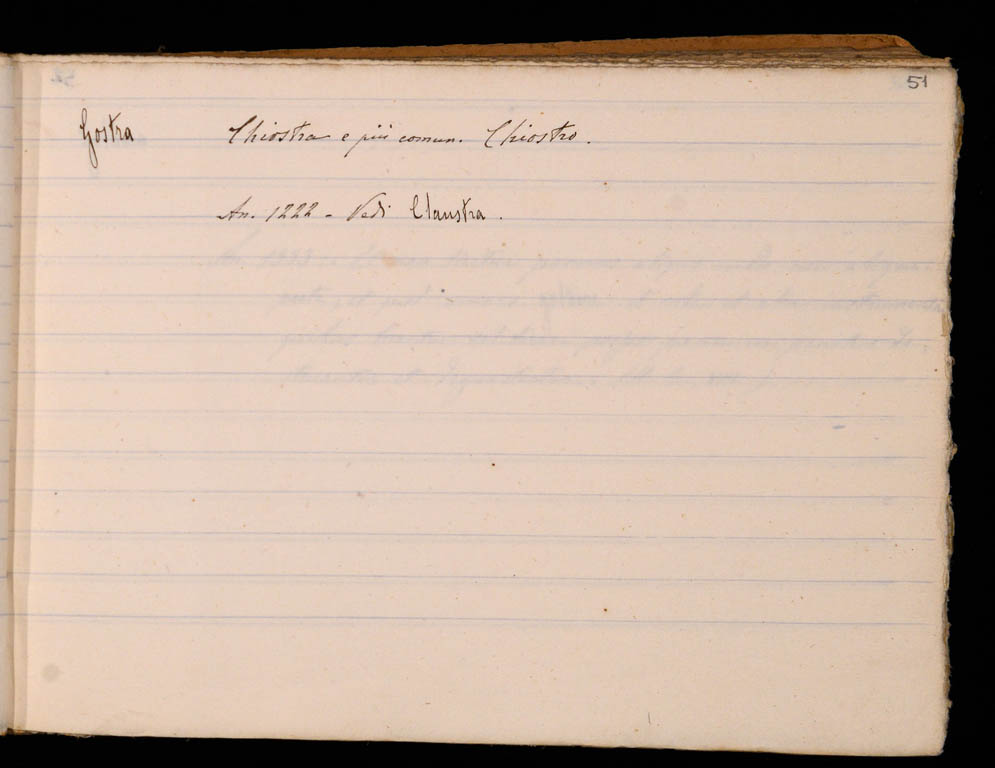 51
Gostra Chiostra e più comun. Chiostro.
An. 1222 - Vedi Claustra.